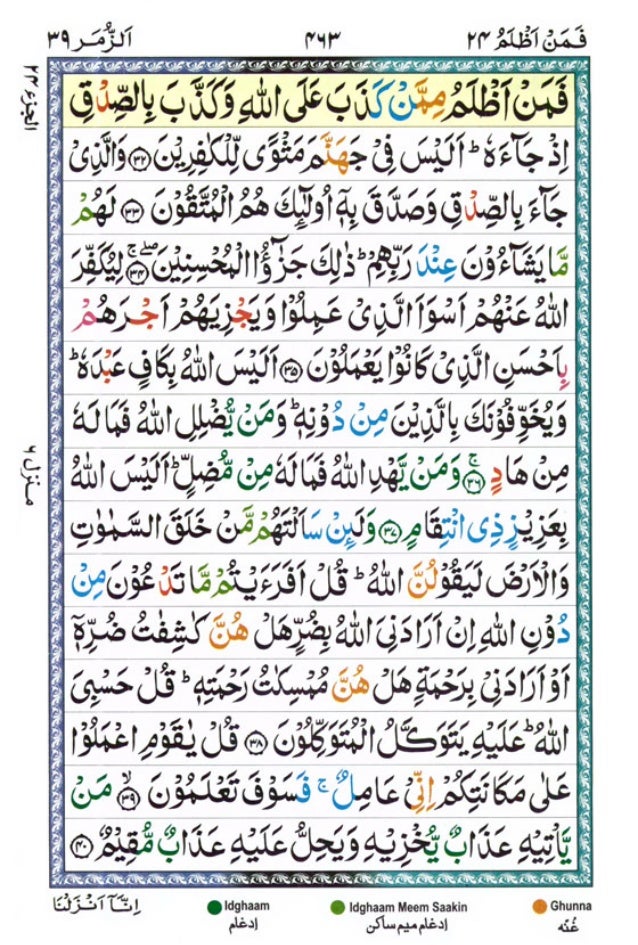 فَمَنْ اَظْلَمُ ٢٤
٤٦٣
اَلزُّمَر ٣٩
الجزء ٢٤
منزل ٦
فَمَنْ اَظْلَمُ مِمَّنْ كَذَبَ عَلَى اللّٰهِ وَكَذَّبَ بِالصِّدْقِ
اِذْ جَآءَهٗ ؕ اَلَيْسَ فِىْ جَهَنَّمَ مَثْوًى لِّلْكٰفِرِيْنَ ﴿٣٢﴾ وَالَّذِىْ
جَآءَ بِالصِّدْقِ وَصَدَّقَ بِهٖۤ اُولٰٓئِكَ هُمُ الْمُتَّقُوْنَ ﴿٣٣﴾ لَهُمْ
مَّا يَشَآءُوْنَ عِنْدَ رَبِّهِمْ ؕ ذٰلِكَ جَزٰٓؤُا الْمُحْسِنِيْنَ ۖۚ ﴿٣٤﴾ لِيُكَفِّرَ
اللّٰهُ عَنْهُمْ اَسْوَاَ الَّذِىْ عَمِلُوْا وَيَجْزِيَهُمْ اَجْرَهُمْ
بِاَحْسَنِ الَّذِىْ كَانُوْا يَعْمَلُوْنَ ﴿٣٥﴾ اَلَيْسَ اللّٰهُ بِكَافٍ عَبْدَهٗ ؕ
وَيُخَوِّفُوْنَكَ بِالَّذِيْنَ مِنْ دُوْنِهٖ ؕ وَمَنْ يُّضْلِلِ اللّٰهُ فَمَا لَهٗ
مِنْ هَادٍ ۚ ﴿٣٦﴾ وَمَنْ يَّهْدِ اللّٰهُ فَمَا لَهٗ مِنْ مُّضِلٍّ ؕ اَلَيْسَ اللّٰهُ
بِعَزِيْزٍ ذِى انْتِقَامٍ ﴿٣٧﴾ وَلَئِنْ سَاَلْتَهُمْ مَّنْ خَلَقَ السَّمٰوٰتِ
وَالْاَرْضَ لَيَقُوْلُنَّ اللّٰهُ ؕ قُلْ اَفَرَءَيْتُمْ مَّا تَدْعُوْنَ مِنْ
دُوْنِ اللّٰهِ اِنْ اَرَادَنِىَ اللّٰهُ بِضُرٍّ هَلْ هُنَّ كٰشِفٰتُ ضُرِّهٖۤ
اَوْ اَرَادَنِىْ بِرَحْمَةٍ هَلْ هُنَّ مُمْسِكٰتُ رَحْمَتِهٖ ؕ قُلْ حَسْبِىَ
اللّٰهُ ؕ عَلَيْهِ يَتَوَكَّلُ الْمُتَوَكِّلُوْنَ ﴿٣٨﴾ قُلْ يٰقَوْمِ اعْمَلُوْا
عَلٰى مَكَانَتِكُمْ اِنِّىْ عَامِلٌ ۚ فَسَوْفَ تَعْلَمُوْنَ ۙ ﴿٣٩﴾ مَنْ
يَّاْتِيْهِ عَذَابٌ يُّخْزِيْهِ وَيَحِلُّ عَلَيْهِ عَذَابٌ مُّقِيْمٌ ﴿٤٠﴾
اِنَّاۤ اَنْزَلْنَا
Idghaam
ادغام
Idghaam Meem Saakin
ادغام میم ساکن
Ghunna
غُنّه